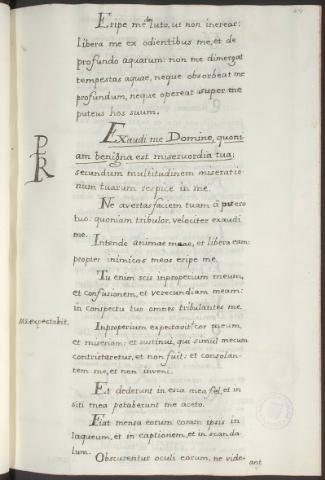 Eripe me de luto, ut non inerear:
libera me ex odientibus me, et de
profundo aquarum: non me dimergat
tempestas aquae, neque obsorbeat me
profundum, neque opereat super me
puteus hos suum.
Exaudi me Domine, quoni
am benigna est misericordia tua:
secundum multitudinem miseratio
num tuarum respice in me.
Ne avertas faciem tuam à puero
tuo: quoniam tribulor, velociter exaudi
me.
Intende animae meae, et libera eam:
propter inimicos meos eripe me.
Tu enim scis inproperium meum,
et confusionem, et verecundiam meam:
in conspectu tuo omnes tribulantes me.
Ms. expectabit.
Inproperium expectavit cor meum,
et miseriam: et sustinui, qui simul mecum
contristaretur, et non fuit: et consolan-
tem me, et non inveni.
Et dederunt in esca mea fel, et in
siti mea potaberunt me aceto.
Fiat mensa eorum coram ipsis in
laqueum, et in captionem, et in scanda
lum.
Obscurentur oculi eorum, ne vide-
ant